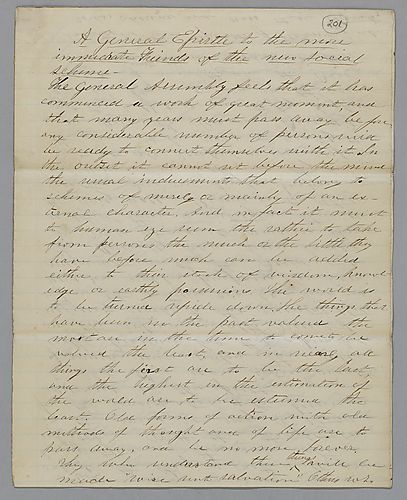 201
A General Epistle to the more
immediate Friends of the new social
scheme—
The General Assembly feels that it has
commenced a work of great moment, and
that many years must pass away before
any considerable number of persons will
be ready to connect themselves with it. In
the outset it cannot set before the mind
the usual inducements that belong to
schemes of merely or mainly of an ex-
ternal character. And in fact it must
to human eye seem the rather to take
from persons the much or the little they
have before much can be added
either to their stock of wisdom, knowl-
edge or earthly possessions. The world is
to be turned upside down, the things that
have been in the past valued the
most are in the time to come to be
valued the least, and in nearly all
things the first are to be the last
and the highest in the estimation of
the world are to be esteemed the
least. Old forms of action with old
methods of thought and of life are to
pass away, and be no more forever.
They who understand these things will be
made "wise unto salvation"